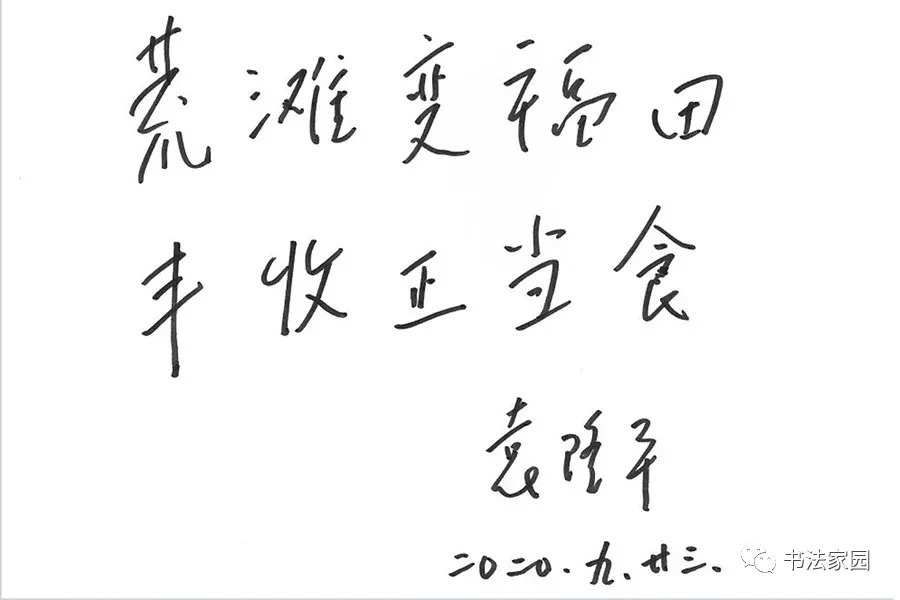 荒滩变福田
丰收正当食
袁隆平
二〇二〇.九.廿三.
书法家园